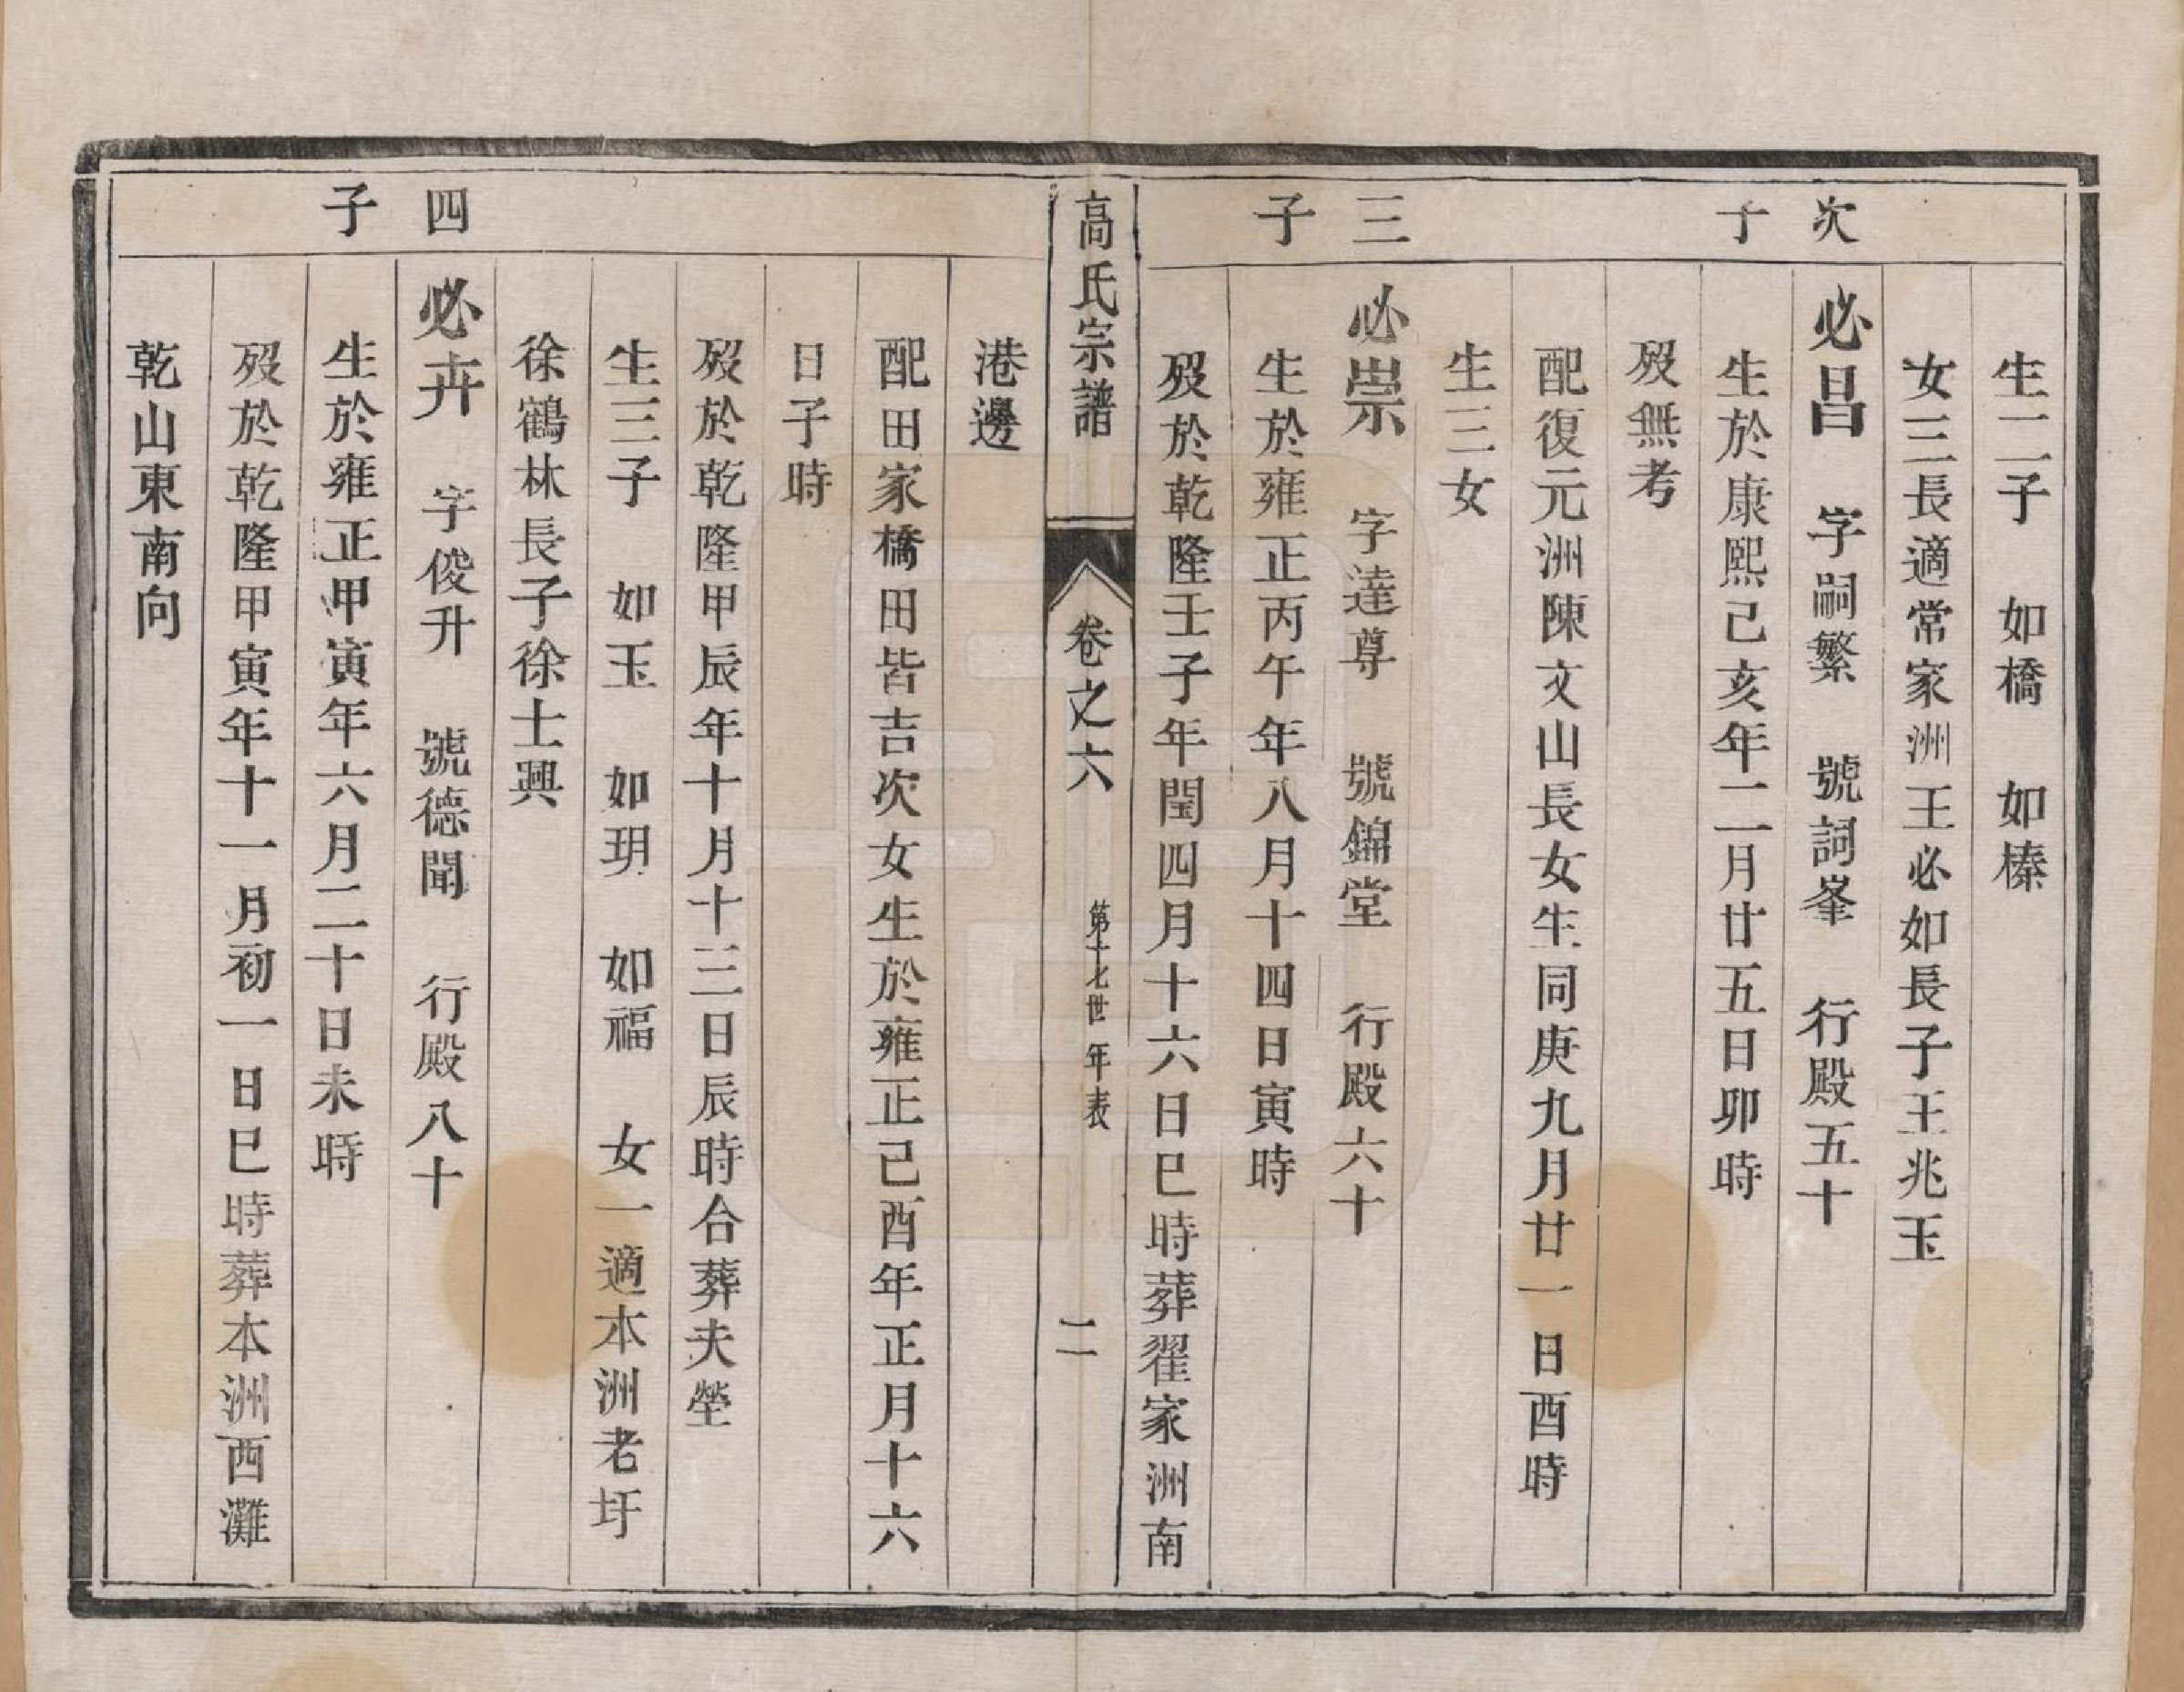 生二子　如橋　如榛
女三長適常家洲王必如長子王兆玉
次子
必昌　字嗣繁　號詞峯　行殿五十
生於康熙己亥年二月廿五日卯時
歿無考
配復元洲陳文山長女生同庚九月廿一日酉時
生三女
三子
必崇　字達尊　號錦堂　行殿六十
生於雍正丙午年八月十四日寅時
歿於乾隆壬子年閏四月十六日巳時葬翟家洲南
高氏宗譜　卷之六　第十七世年表　二
港邊
配田家橋田皆吉次女生於雍正己酉年正月十六
日子時
歿於乾隆甲辰年十月十三日辰時合葬夫塋
生三子　如玉　如玥　如福　女一適本洲老圩
徐鶴林長子徐士興
四子
必卉　字俊升　號德聞　行殿八十
生於雍正甲寅年六月二十日未時
歿於乾隆甲寅年十一月初一日巳時葬本洲西灘
乾山東南向